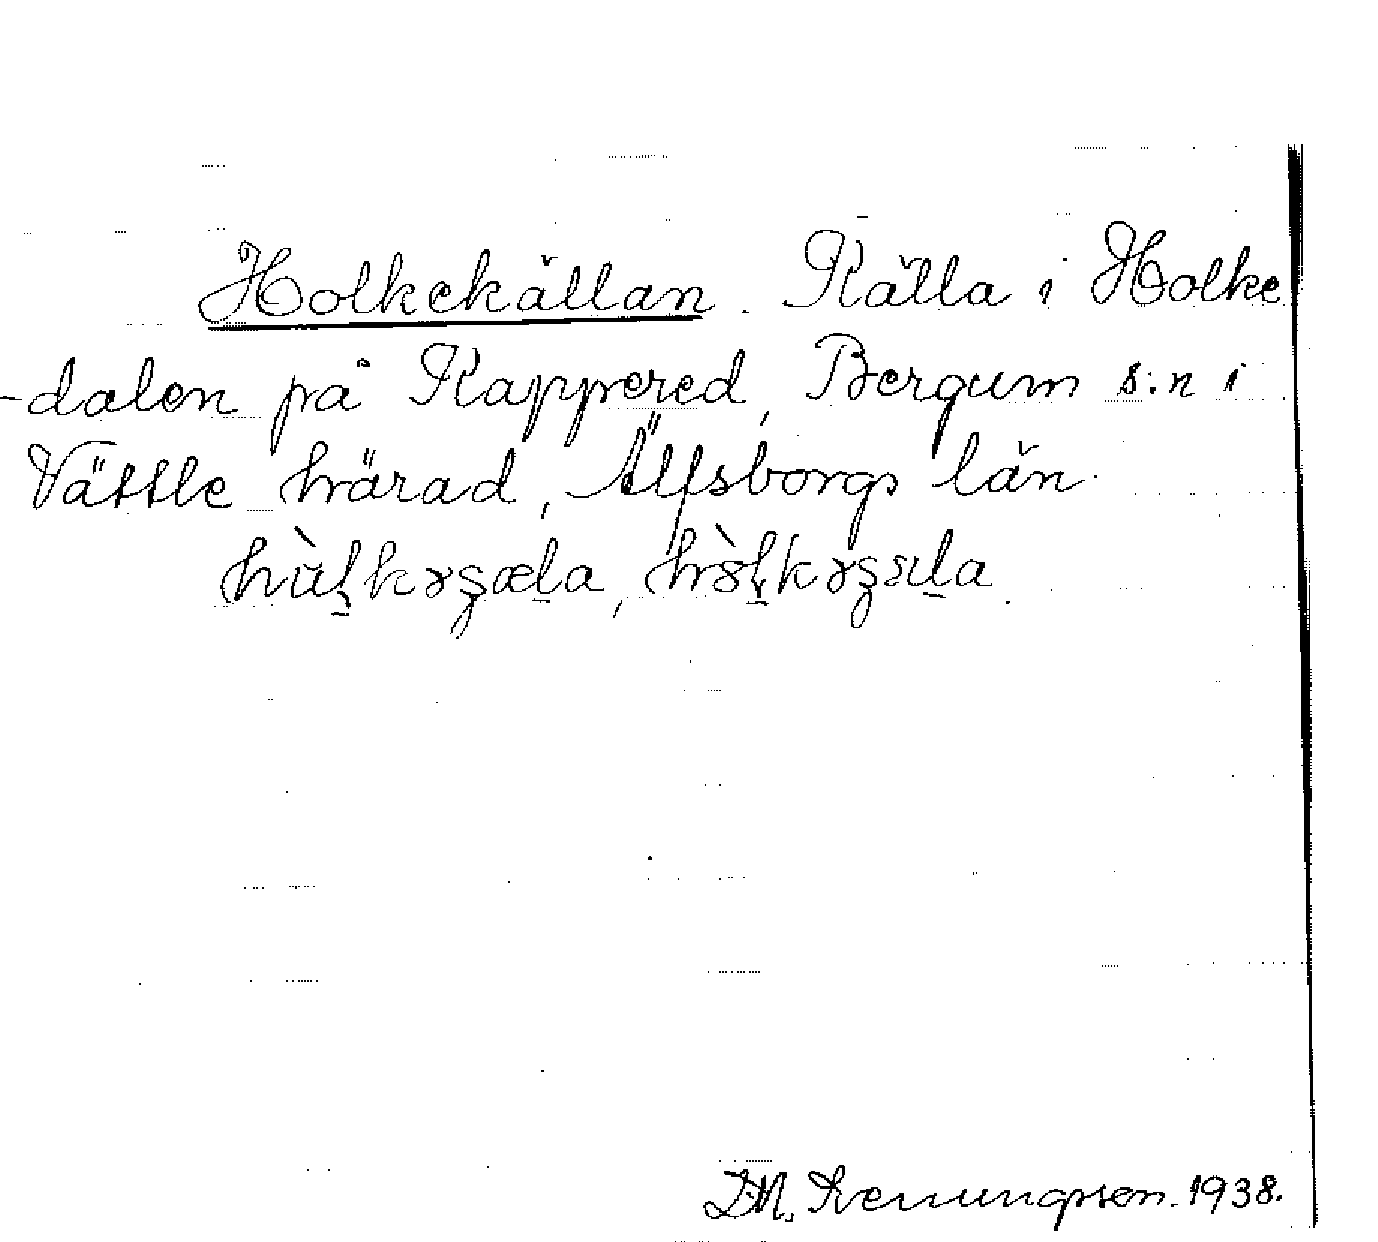 Holkekällan. Källa i Holke
-dalen på Kappered, Bergum s:n i
Vättle härad, Älfsborgs län.
1938.